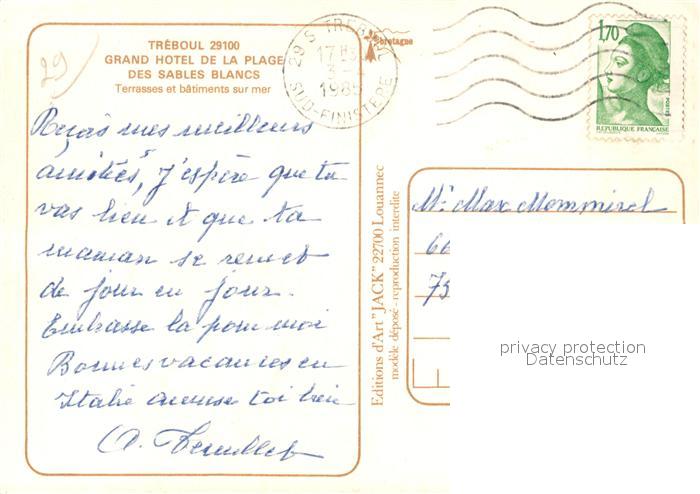 TRÉBOUL 29100
GRAND HOTEL DE LA PLAGE
DES SABLES BLANCS
Terrasses et bâtiments sur mer
29
29 S TREBOUL
17 H
3-
1985
SUD-FINISTERE
bretagne
1,70
POSTES
REPUBLIQUE FRANÇAISE
Reçois mes meilleurs
amitiés, J'espère que tu
vas bien et que ta
maman se remet
de jour en jour.
Embrasse la pour moi
Bonnes vacances en
Italie amuse toi bien
Editions d'Art "JACK" 22700 Louannec
modèle déposé - reproduction interdite
Mr Max
66
75
privacy protection
Datenschutz